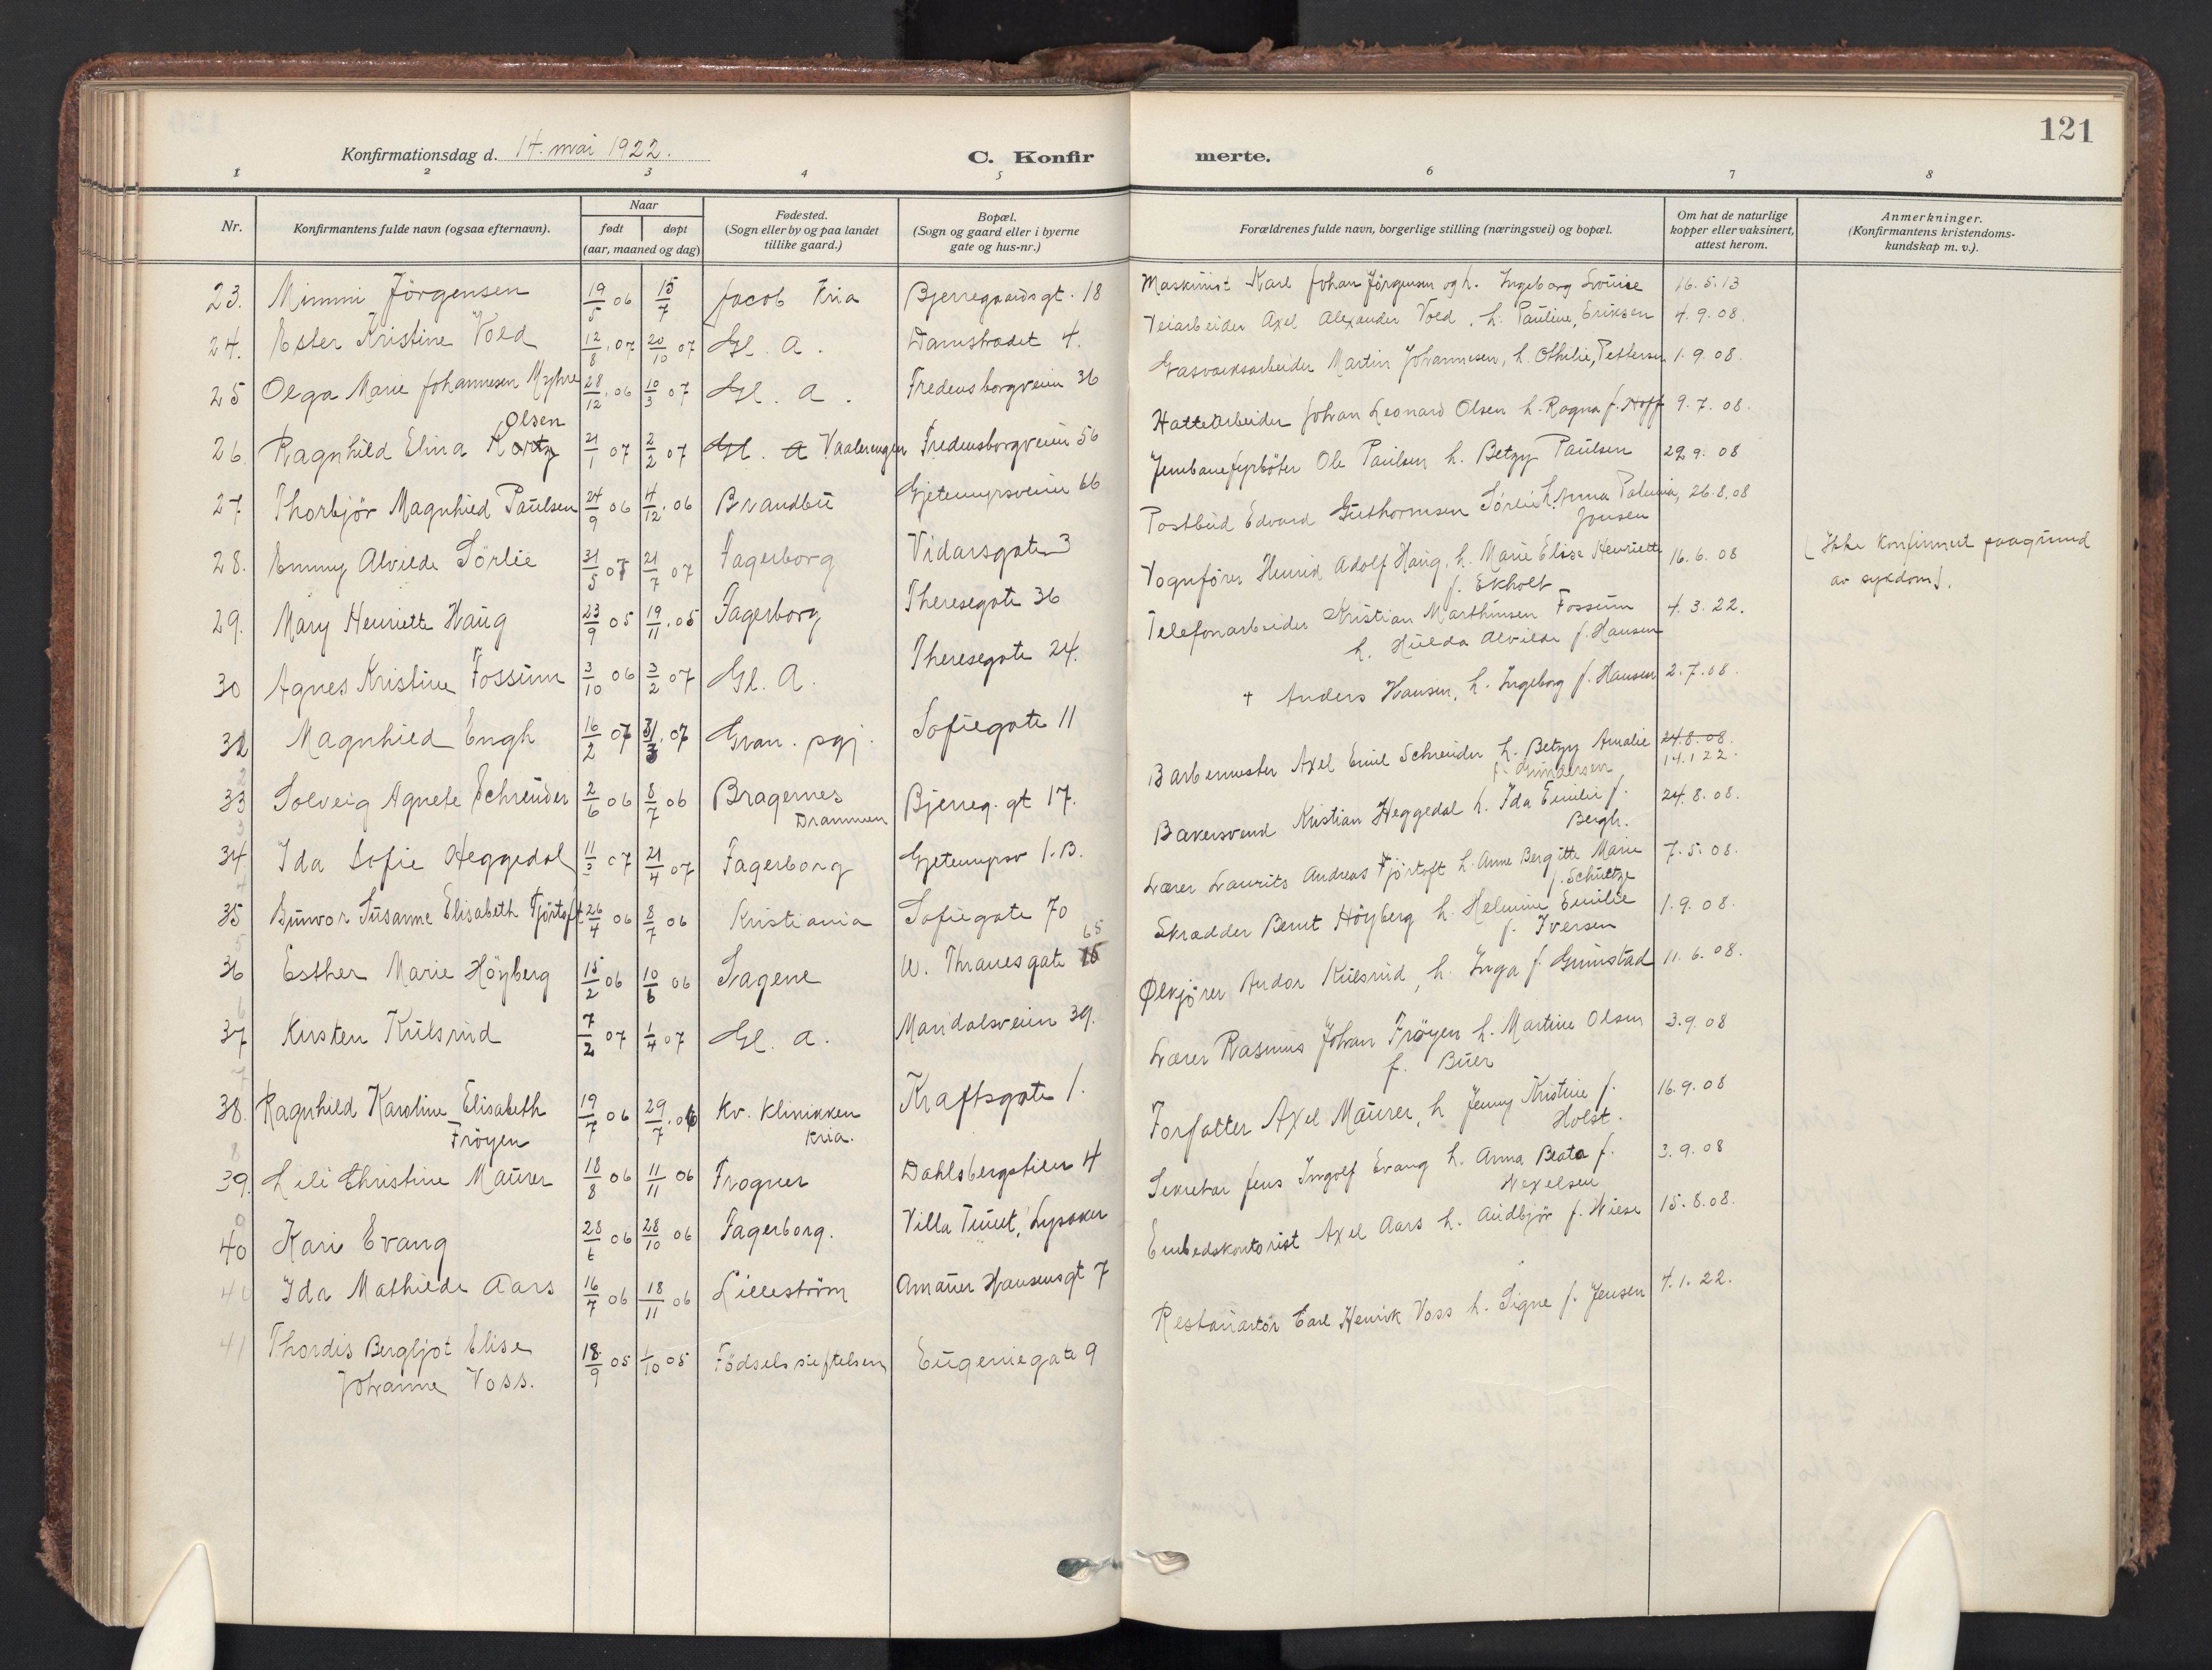 121
Konfirmationsdag d. 14. mai 1922.
C. Konfir merte.
1 2 3 4 5 6 7 8
Nr.
Konfirmantens fulde navn (ogsaa efternavn).
Naar
født døpt
(aar, maaned og dag)
Fødested.
(Sogn eller by og paa landet
tillike gaard.)
Bopæl.
(Sogn og gaard eller i byerne
gate og hus-nr.)
Forældrenes fulde navn, borgerlige stilling (næringsvei) og bopæl.
Om hat de naturlige
kopper eller vaksinert,
attest herom.
Anmerkninger.
(Konfirmantens kristendoms-
kundskap m. v.).
23. Mimmi Jörgensen 19/5 06 15/7 Jacob Kria Bjerregaardsgt. 18 Maskinist Karl Johan Jörgensen og h. Ingeborg Lovise 16.5.13
24. Ester Kristine Vold 12/8 07 20/10 07 Gl. A. Damstrædet 4. Veiarbeider Axel Alexander Vold, h. Pauline, Eriksen 4.9.08.
25 Olga Marie Johannesen Myhre 28/12 06 10/3 07 Gl. A. Fredensborgveien 36 Gasværksarbeider Martin Johannesen, h. Othilie, Pettersen 1.9.08.
Olsen
26. Ragnhild Elina Kortz 21/1 07 2/2 07 Gl. A Vaalerengen Fredensborgveien 56 Hattearbeider Johan Leonard Olsen h. Ragna f. Hoff 9.7.08.
27 Thorbjör Magnhild Paulsen 24/9 06 4/12 06 Brandbu Gjetemyrsveien 66 Jernbanefyrböter Ole Paulsen h. Betzy Paulsen 29.9.08
28. Emmy Alvilde Sörlie 31/5 07 21/7 07 Fagerborg Vidarsgate 3 Postbud Edvard Guthormsen Sörlie h. Anna Palmia, 26.8.08
Jonsen
29. Mary Henriette Haug 23/9 05 19/11 05 Fagerborg Theresegate 36 Vognförer Henrik Adolf Haug, h. Marie Elise Henriette 16.6.08 (Ikke konfirmert paagrund
f. Ekholt av sykdom).
30 Agnes Kristine Fossum 3/10 06 3/2 07 Gl. A. Theresegate 24. Telefonarbeider Kristian Marthinsen Fossum 4.3.22.
h. Hulda Alvilde f. Hansen
31 Magnhild Engh 16/2 07 31/3 07 Gran. pgj. Sofiegate 11 + Anders Hansen, h. Ingeborg f. Hansen 2.7.08.
33 Solveig Agnete Schreuder 2/6 06 8/7 06 Bragernes Bjerreg. gt 17. Barbermester Axel Emil Schreuder h. Betzy Amalie 24.8.08.
Drammen f. Gundersen 14.1 22.
34. Ida Sofie Heggedal 11/3 07 21/4 07 Fagerborg Gjetemyrsv 1.B. Bakersvend Kristian Heggedal h. Ida Emilie f. 24.8.08.
Bergh.
35 Gunvor Susanne Elisabeth Fjörtoft 26/4 06 8/7 06 Kristiania Sofiegate 70 Lærer Laurits Andreas Fjörtoft h. Anne Bergitte Marie 7.5.08.
f. Schultze
65
36 Esther Marie Höyberg 15/2 06 10/6 06 Sagene W. Thranesgate 15 Skrædder Bernt Höyberg h. Helmine Emilie 1.9.08.
f. Iversen
37 Kirsten Kulsrud 7/2 07 1/4 07 Gl. A. Maridalsveien 39. Ølkjörer Andor Kulsrud, h. Inga f. Grimstad 11.6.08.
38. Ragnhild Karoline Elisabeth 19/7 06 29/7 06 Kv. Klinikken Kraftsgate 1. Lærer Rasmus Johan Fröyen h. Martine Olsen 3.9.08
Fröyen Kria. f. Buer
39. Lili Christine Maurer 18/8 06 11/11 06 Frogner Dahlsbergstien 4 Forfatter Axel Maurer, h. Jenny Kristine f. 16.9.08
Holst.
40 Kari Evang 28/6 06 28/10 06 Fagerborg. Villa Tunet, Lysaker Sekretær Jens Ingolf Evang h. Anna Beata f. 3.9.08
Wexelsen
40 Ida Mathilde Aars 16/7 06 18/11 06 Lilleström Amauer Hansensgt 7 Embedskontorist Axel Aars h. Audbjör f. Wiese 15.8.08.
41 Thordis Bergljot Elise 18/9 05 1/10 05 Födselsstiftelsen Eugeniegate 9 Restauratör Carl Henrik Voss h. Signe f. Jensen 4.1.22.
Johanne Voss.